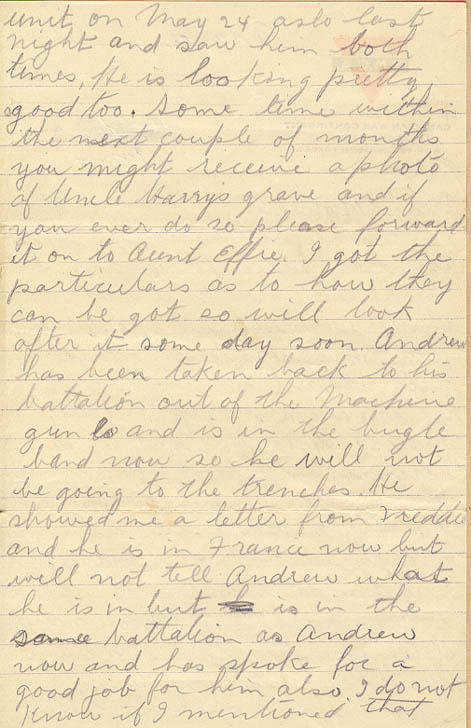 unit on May 24 aslo last
night and saw him both
times, He is looking pretty
good too. Some time within
the next couple of months
you might receive a photo
of Uncle Harrys grave and if
you ever do so please forward
it on to Aunt Effie. I got the
particulars as to how they
can be got so will look
after it some day soon. Andrew
has been taken back to his
battalion out of the Machine
gun and is in the bugle
band now so he will not
be going to the trenches. He
showed me a letter from Freddie
and he is in France now but
will not tell Andrew what
he is in but is in the
same battalion as Andrew
now and has spoke for a
good job for him also. I do not
know if I mentioned that